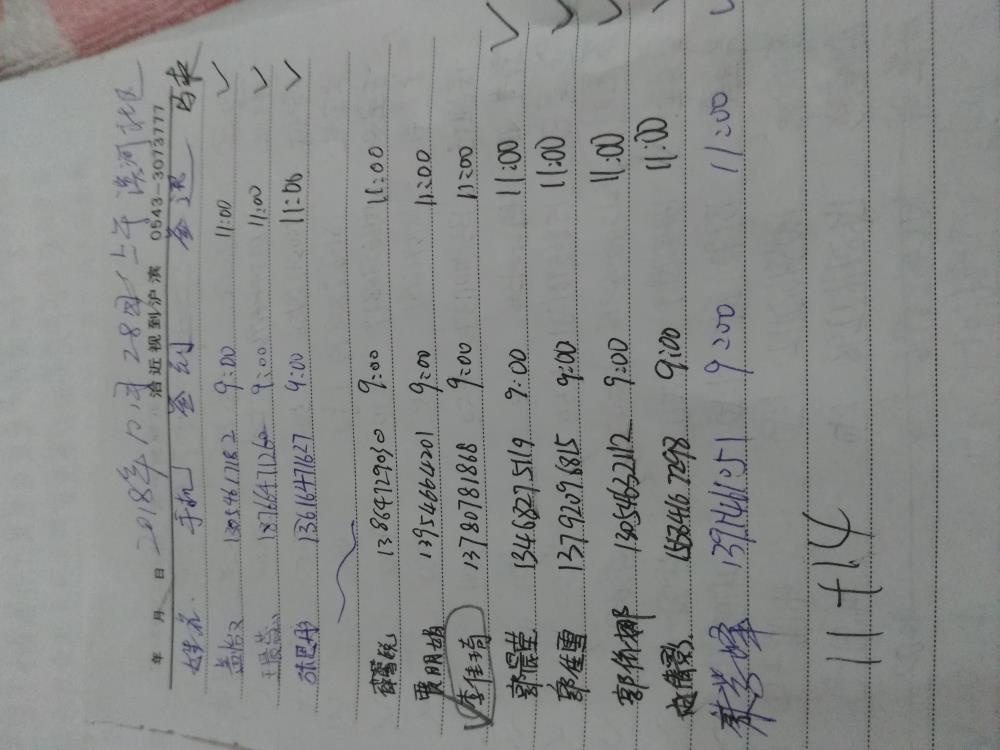 2018年10月28日上午滨河社区
年 月 日 治近视到沪滨 0543-3073777
姓名 手机 签到 签退
13054617182 9:00 11:00 ✓
18764711260 9:00 11:00 ✓
13616471627 9:00 11:00 ✓
13864729030 9:00 11:00
贾朋娟 13954664201 9:00 11:00
✓李佳琦 13780781868 9:00 11:00
郭晨莹 13468275119 9:00 11:00 ✓
郭雪 13792096815 9:00 11:00 ✓
郭娜 13054632112 9:00 11:00 ✓
赵倩影 1538467298 9:00 11:00 ✓
9:00 11:00 ✓
11+14